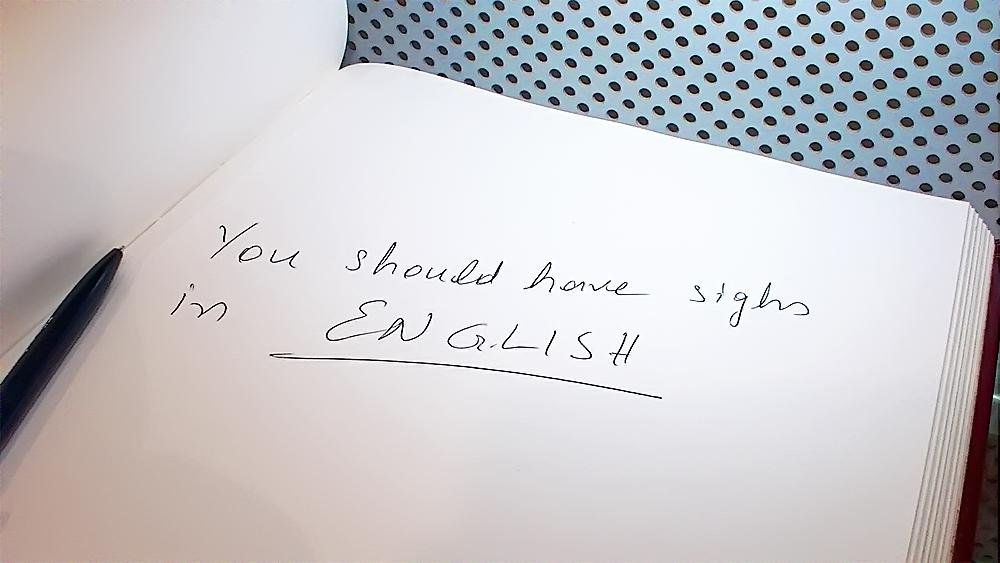 You should have sighs
in ENGLISH